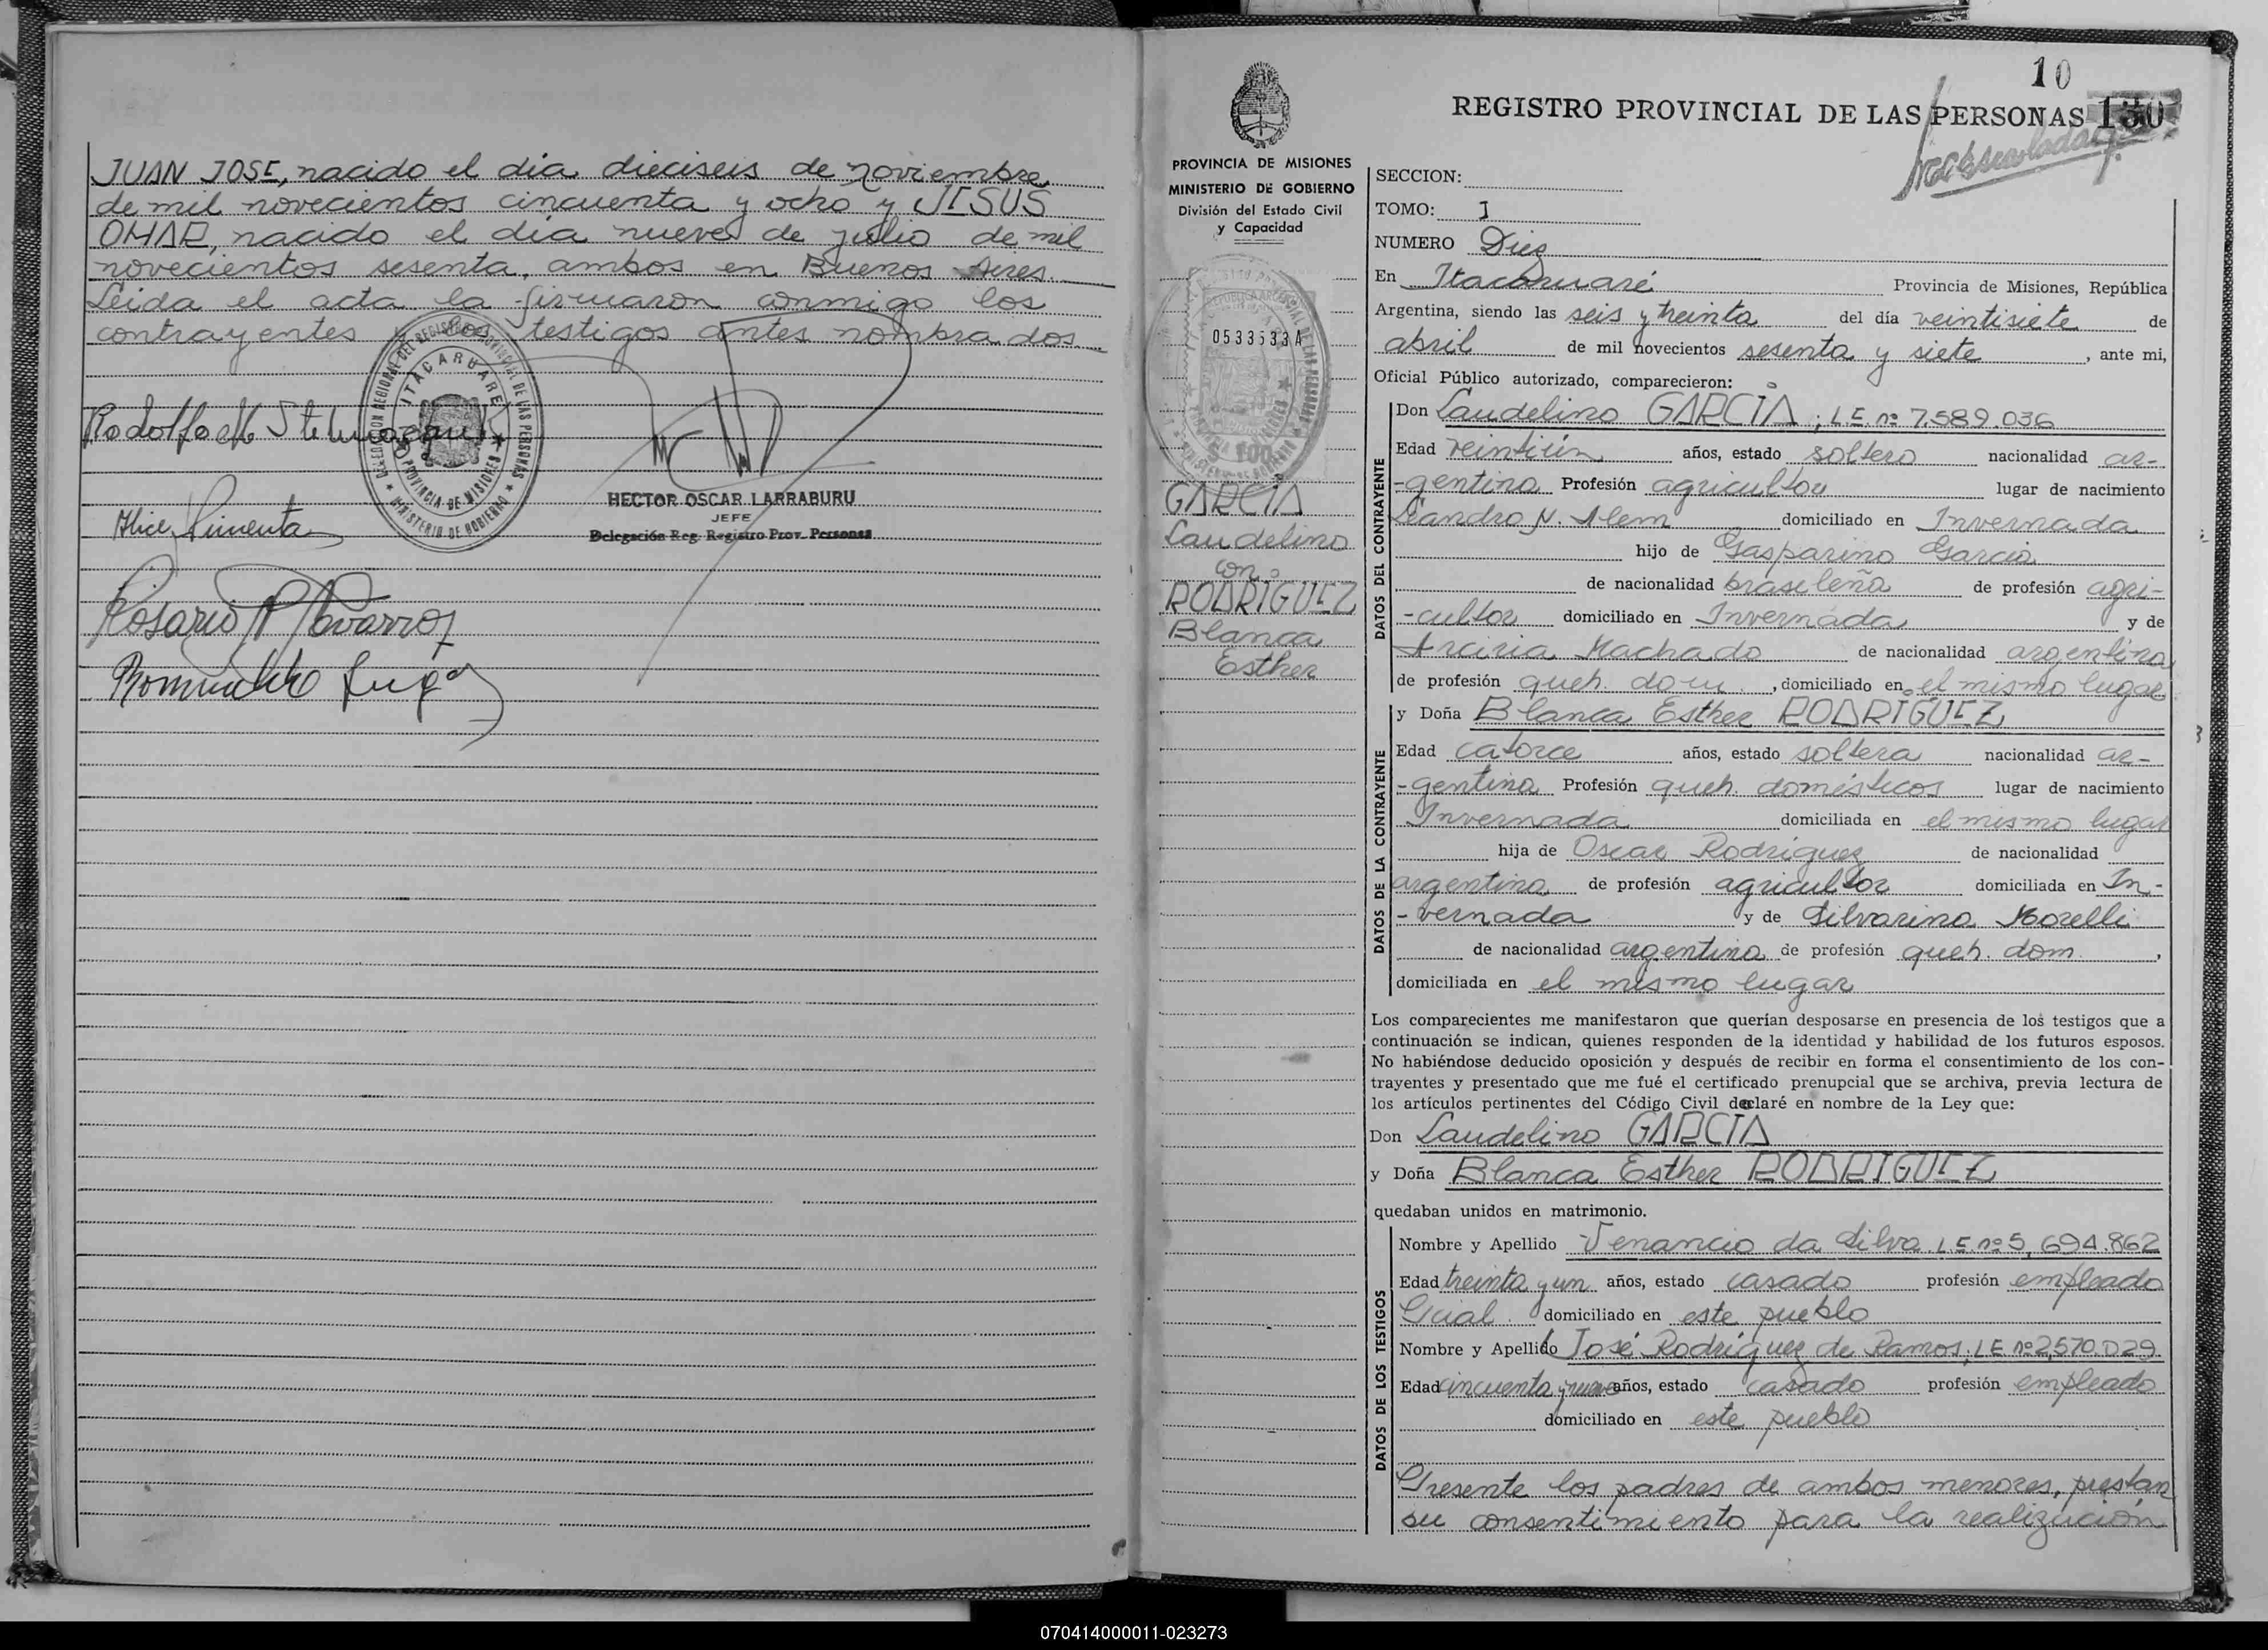 JUAN JOSE, nacido el día dieciseis de noviembre
de mil novecientos cincuenta y ocho y JESUS
OMAR, nacido el día nueve de julio de mil
novecientos sesenta, ambos en Buenos Aires.
Leida el acta la firmaron conmigo los
contrayentes y los testigos antes nombrados.
DELEGACION REGIONAL DEL REGISTRO PROVINCIAL DE LAS PERSONAS
ITACARUARE
PROVINCIA DE MISIONES
MINISTERIO DE GOBIERNO
Alice Pimenta
HECTOR OSCAR LARRABURU
JEFE
Delegación Reg. Registro Prov. Personas
10
REGISTRO PROVINCIAL DE LAS PERSONAS 130
PROVINCIA DE MISIONES
MINISTERIO DE GOBIERNO
División del Estado Civil
y Capacidad
0533533A
GARCIA
Laudelino
con
RODRIGUEZ
Blanca
Esther
SECCION:
TOMO: I
NUMERO Diez
En Itacaruaré Provincia de Misiones, República
Argentina, siendo las seis y treinta del día veintisiete de
abril de mil novecientos sesenta y siete, ante mi,
Oficial Público autorizado, comparecieron:
DATOS DEL CONTRAYENTE
Don Laudelino GARCIA; L.E. nº 7.589.036
Edad veintiún años, estado soltero nacionalidad ar-
-gentina Profesión agricultor lugar de nacimiento
Leandro N. Alem domiciliado en Invernada
hijo de Gasparino Garcia
de nacionalidad brasileña de profesión agri-
-cultor domiciliado en Invernada y de
Machado de nacionalidad argentina
de profesión queh. dom., domiciliado en el mismo lugar
DATOS DE LA CONTRAYENTE
y Doña Blanca Esther RODRIGUEZ
Edad catorce años, estado soltera nacionalidad ar-
-gentina Profesión queh. domésticos lugar de nacimiento
Invernada domiciliada en el mismo lugar
hija de Oscar Rodriguez de nacionalidad
argentina de profesión agricultor domiciliada en In-
-vernada y de Silvarina Morelli
de nacionalidad argentina de profesión queh. dom.,
domiciliada en el mismo lugar
Los comparecientes me manifestaron que querían desposarse en presencia de los testigos que a
continuación se indican, quienes responden de la identidad y habilidad de los futuros esposos.
No habiéndose deducido oposición y después de recibir en forma el consentimiento de los con-
trayentes y presentado que me fué el certificado prenupcial que se archiva, previa lectura de
los artículos pertinentes del Código Civil declaré en nombre de la Ley que:
Don Laudelino GARCIA
y Doña Blanca Esther RODRIGUEZ
quedaban unidos en matrimonio.
DATOS DE LOS TESTIGOS
Nombre y Apellido Venancio da Silva L.E. nº 5.694.862
Edad treinta y un años, estado casado profesión empleado
domiciliado en este pueblo
Nombre y Apellido José Rodriguez de Ramos; L.E. nº 2.570.029
Edad cincuenta y nueve años, estado casado profesión empleado
domiciliado en este pueblo
Presente los padres de ambos menores, prestan
su consentimiento para la realización
070414000011-023273